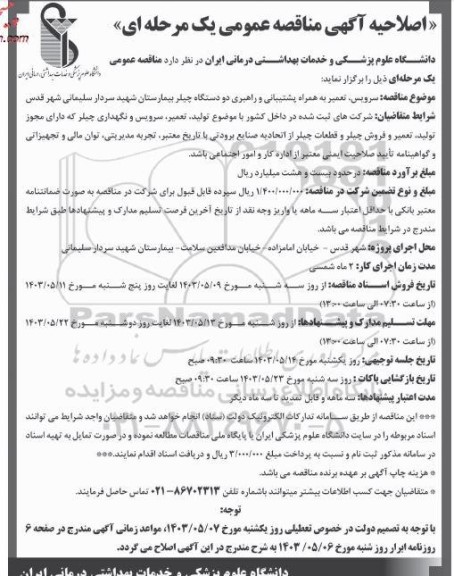 « اصلاحیه آگهی مناقصه عمومی یک مرحله ای»
دانشگاه علوم پزشکی و خدمات بهداشتی درمانی ایران
دانشگاه علوم پزشکی و خدمات بهداشتی درمانی ایران در نظر دارد مناقصه عمومی
یک مرحله‌ای ذیل را برگزار نماید:
موضوع مناقصه: سرویس، تعمیر به همراه پشتیبانی و راهبری دو دستگاه چیلر بیمارستان شهید سردار سلیمانی شهر قدس
شرایط متقاضیان: شرکت های ثبت شده در داخل کشور با موضوع تولید، تعمیر، سرویس و نگهداری چیلر که دارای مجوز
تولید، تعمیر و فروش چیلر و قطعات چیلر از اتحادیه صنایع برودتی با تاریخ معتبر، تجربه مدیریتی، توان مالی و تجهیزاتی
و گواهینامه تأیید صلاحیت ایمنی معتبر از اداره کار و امور اجتماعی باشد.
مبلغ برآورد مناقصه: در حدود بیست و هشت میلیارد ریال
مبلغ و نوع تضمین شرکت در مناقصه: ۱/۴۰۰/۰۰۰/۰۰۰ ریال سپرده قابل قبول برای شرکت در مناقصه به صورت ضمانتنامه
معتبر بانکی با حداقل اعتبار سه ماهه یا واریز وجه نقد از تاریخ آخرین فرصت تسلیم مدارک و پیشنهادها طبق شرایط
مندرج در شرایط مناقصه می باشد.
محل اجرای پروژه: شهر قدس - خیابان امامزاده - خیابان مدافعین سلامت- بیمارستان شهید سردار سلیمانی
مدت زمان اجرای کار: ۲ ماه شمسی
تاریخ فروش اسناد مناقصه: از روز سه شنبه مورخ ۱۴۰۳/۰۵/۰۹ لغایت روز پنج شنبه مورخ ۱۴۰۳/۰۵/۱۱
(از ساعت ۰۷:۳۰ الی ساعت ۱۳:۰۰)
مهلت تسلیم مدارک و پیشنهادها: از روز شنبه مورخ ۱۴۰۳/۰۵/۱۳ لغایت روز دوشنبه مورخ ۱۴۰۳/۰۵/۲۲
(از ساعت ۰۷:۳۰ الی ساعت ۱۳:۰۰)
تاریخ جلسه توجیهی: روز یکشنبه مورخ ۱۴۰۳/۰۵/۱۴ ساعت ۰۹:۳۰ صبح
تاریخ بازگشایی پاکات : روز سه شنبه مورخ ۱۴۰۳/۰۵/۲۳ ساعت ۰۹:۳۰ صبح
مدت اعتبار پیشنهادها: سه ماهه و قابل تمدید تا سه ماه دیگر
*** این مناقصه از طریق سامانه تدارکات الکترونیک دولت (ستاد) انجام خواهد شد و متقاضیان واجد شرایط می توانند
اسناد مربوطه را در سایت دانشگاه علوم پزشکی ایران یا پایگاه ملی مناقصات مطالعه نموده و در صورت تمایل به تهیه اسناد
در سامانه مذکور ثبت نام و نسبت به پرداخت مبلغ ۳/۰۰۰/۰۰۰ ریال و دریافت اسناد اقدام نمایند.***
* هزینه چاپ آگهی بر عهده برنده مناقصه می باشد.
* متقاضیان جهت کسب اطلاعات بیشتر میتوانند باشماره تلفن ۸۶۷۰۲۳۱۳-۰۲۱ تماس حاصل فرمایند.
توجه:
با توجه به تصمیم دولت در خصوص تعطیلی روز یکشنبه مورخ ۱۴۰۳/۰۵/۰۷، مواعد زمانی آگهی مندرج در صفحه ۶
روزنامه ابرار روز شنبه مورخ ۱۴۰۳/۰۵/۰۶ به شرح مندرج در این آگهی اصلاح می گردد.
دانشگاه علوم پزشکی و خدمات بهداشتی درمانی ایران